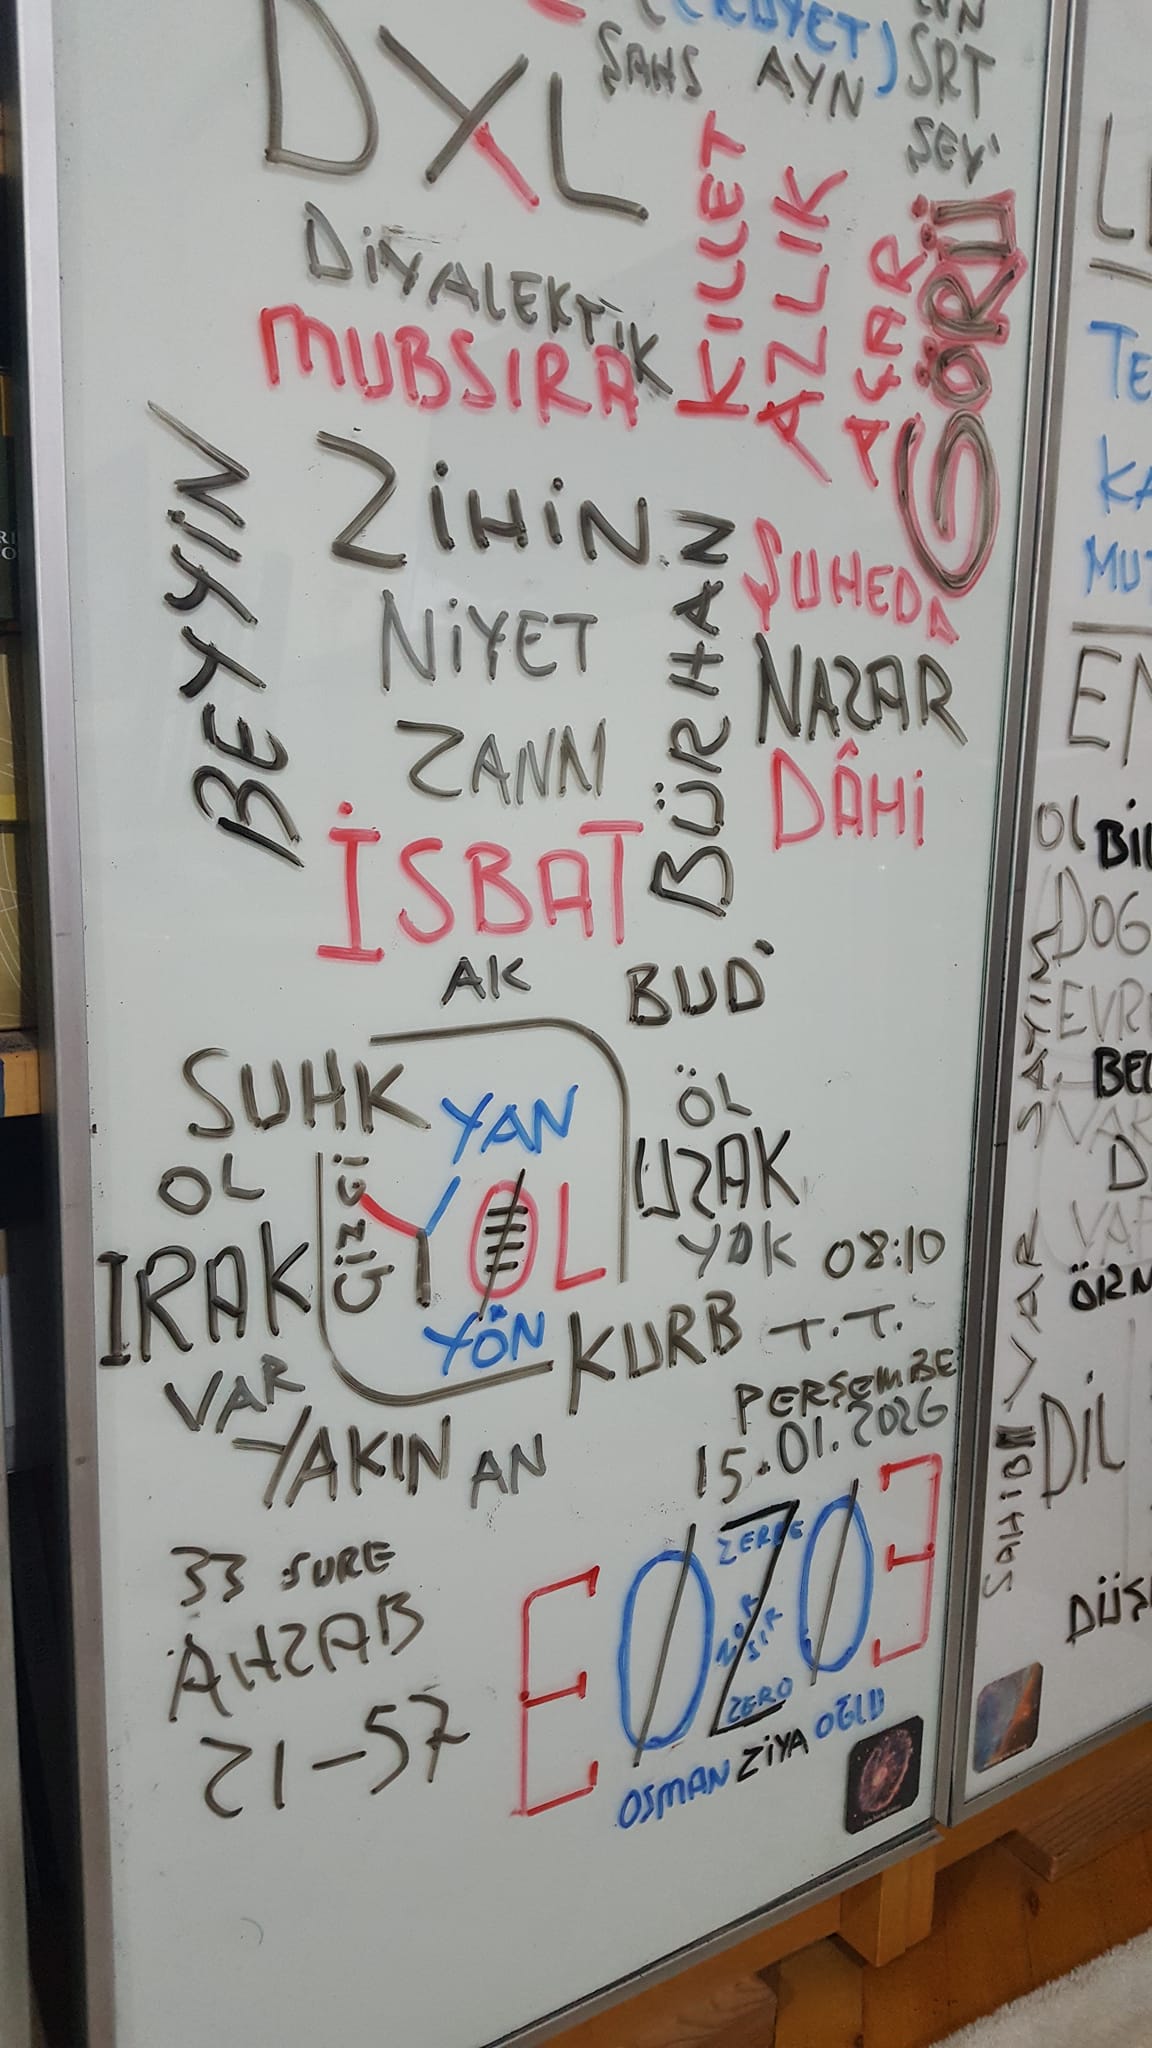 (RÜYET)
DYL
ŞAHS AYN
SRT
SEV
DİYALEKTİK
MUBSIRA
KILLET
AZLIK
GÖRÜ
BEYYİN
ZİHİN
NİYET
ZANNI
İSBAT
BÜRHAN
ŞUHEDA
NAZAR
DÂHİ
AK
BUD
SUHK
YAN
ÖL
OL
ÇİZGİ
YOL
UZAK
IRAK
YOK
08:10
YÖN
KURB
T.T.
VAR
YAKIN
AN
PERŞEMBE
15.01.2026
33 SURE
AHZAB
21-57
E0Z0E
ZERRE
ZERO
OSMAN ZİYA OĞLU
TE
KA
MU
EN
OL BİL
DOĞ
EVR
SAYIM
VAR
DİL
SAHİBİ
DÜŞ